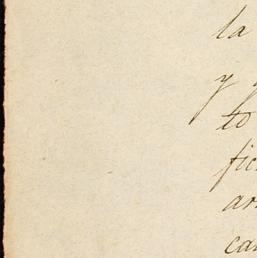 la
y
to
fic
ar
car